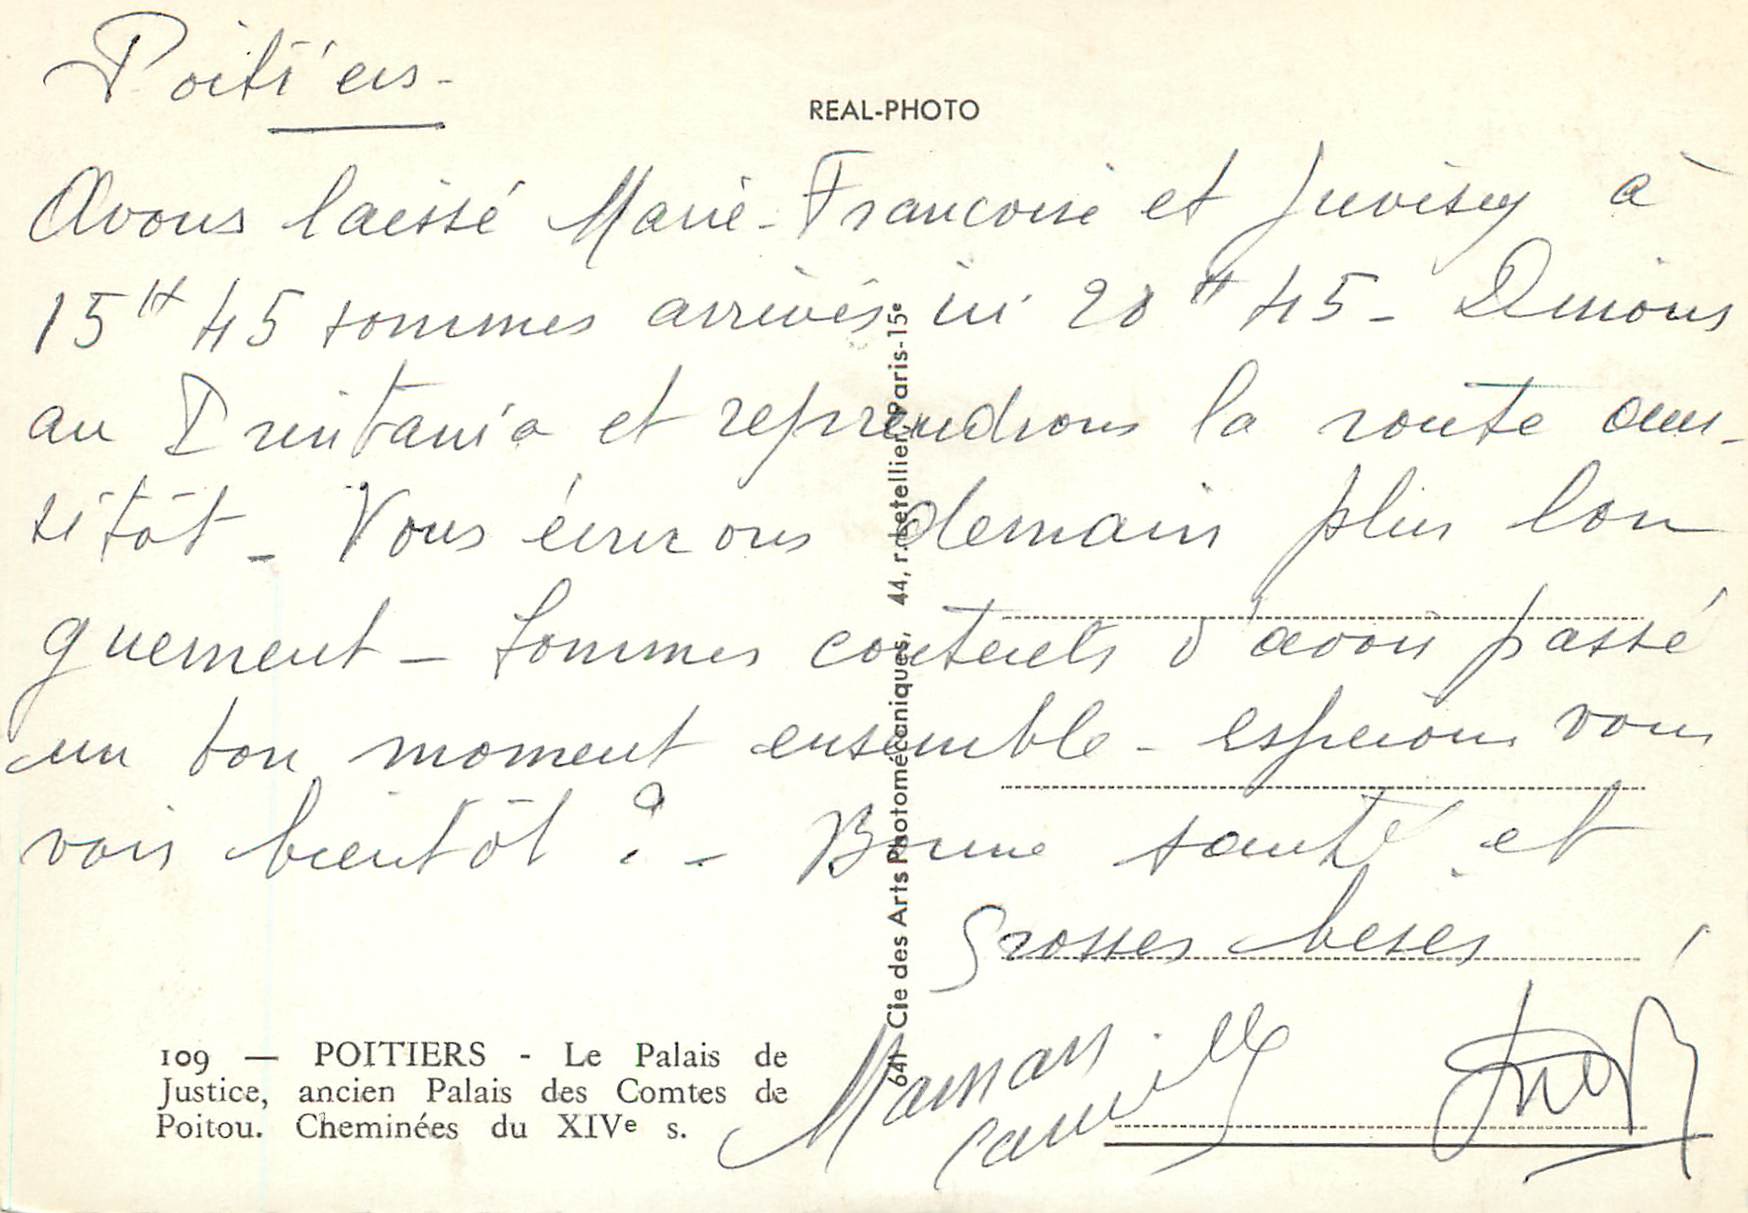 Poitiers -
REAL-PHOTO
Avons laissé Marie-Françoise et Juvisy à
15H 45 sommes arrivés ici 20H 45 - Dînons
au Printania et reprendrons la route aus-
sitôt - Vous écrirons demain plus lon
guement - Sommes contents d'avoir passé
un bon moment ensemble - espérons vous
voir bientôt ? - Bonne santé et
Grosses bises
Maman
Camille
109 — POITIERS - Le Palais de
Justice, ancien Palais des Comtes de
Poitou. Cheminées du XIVe s.
641 Cie des Arts Photomécaniques, 44, r. Letellier, Paris-15e